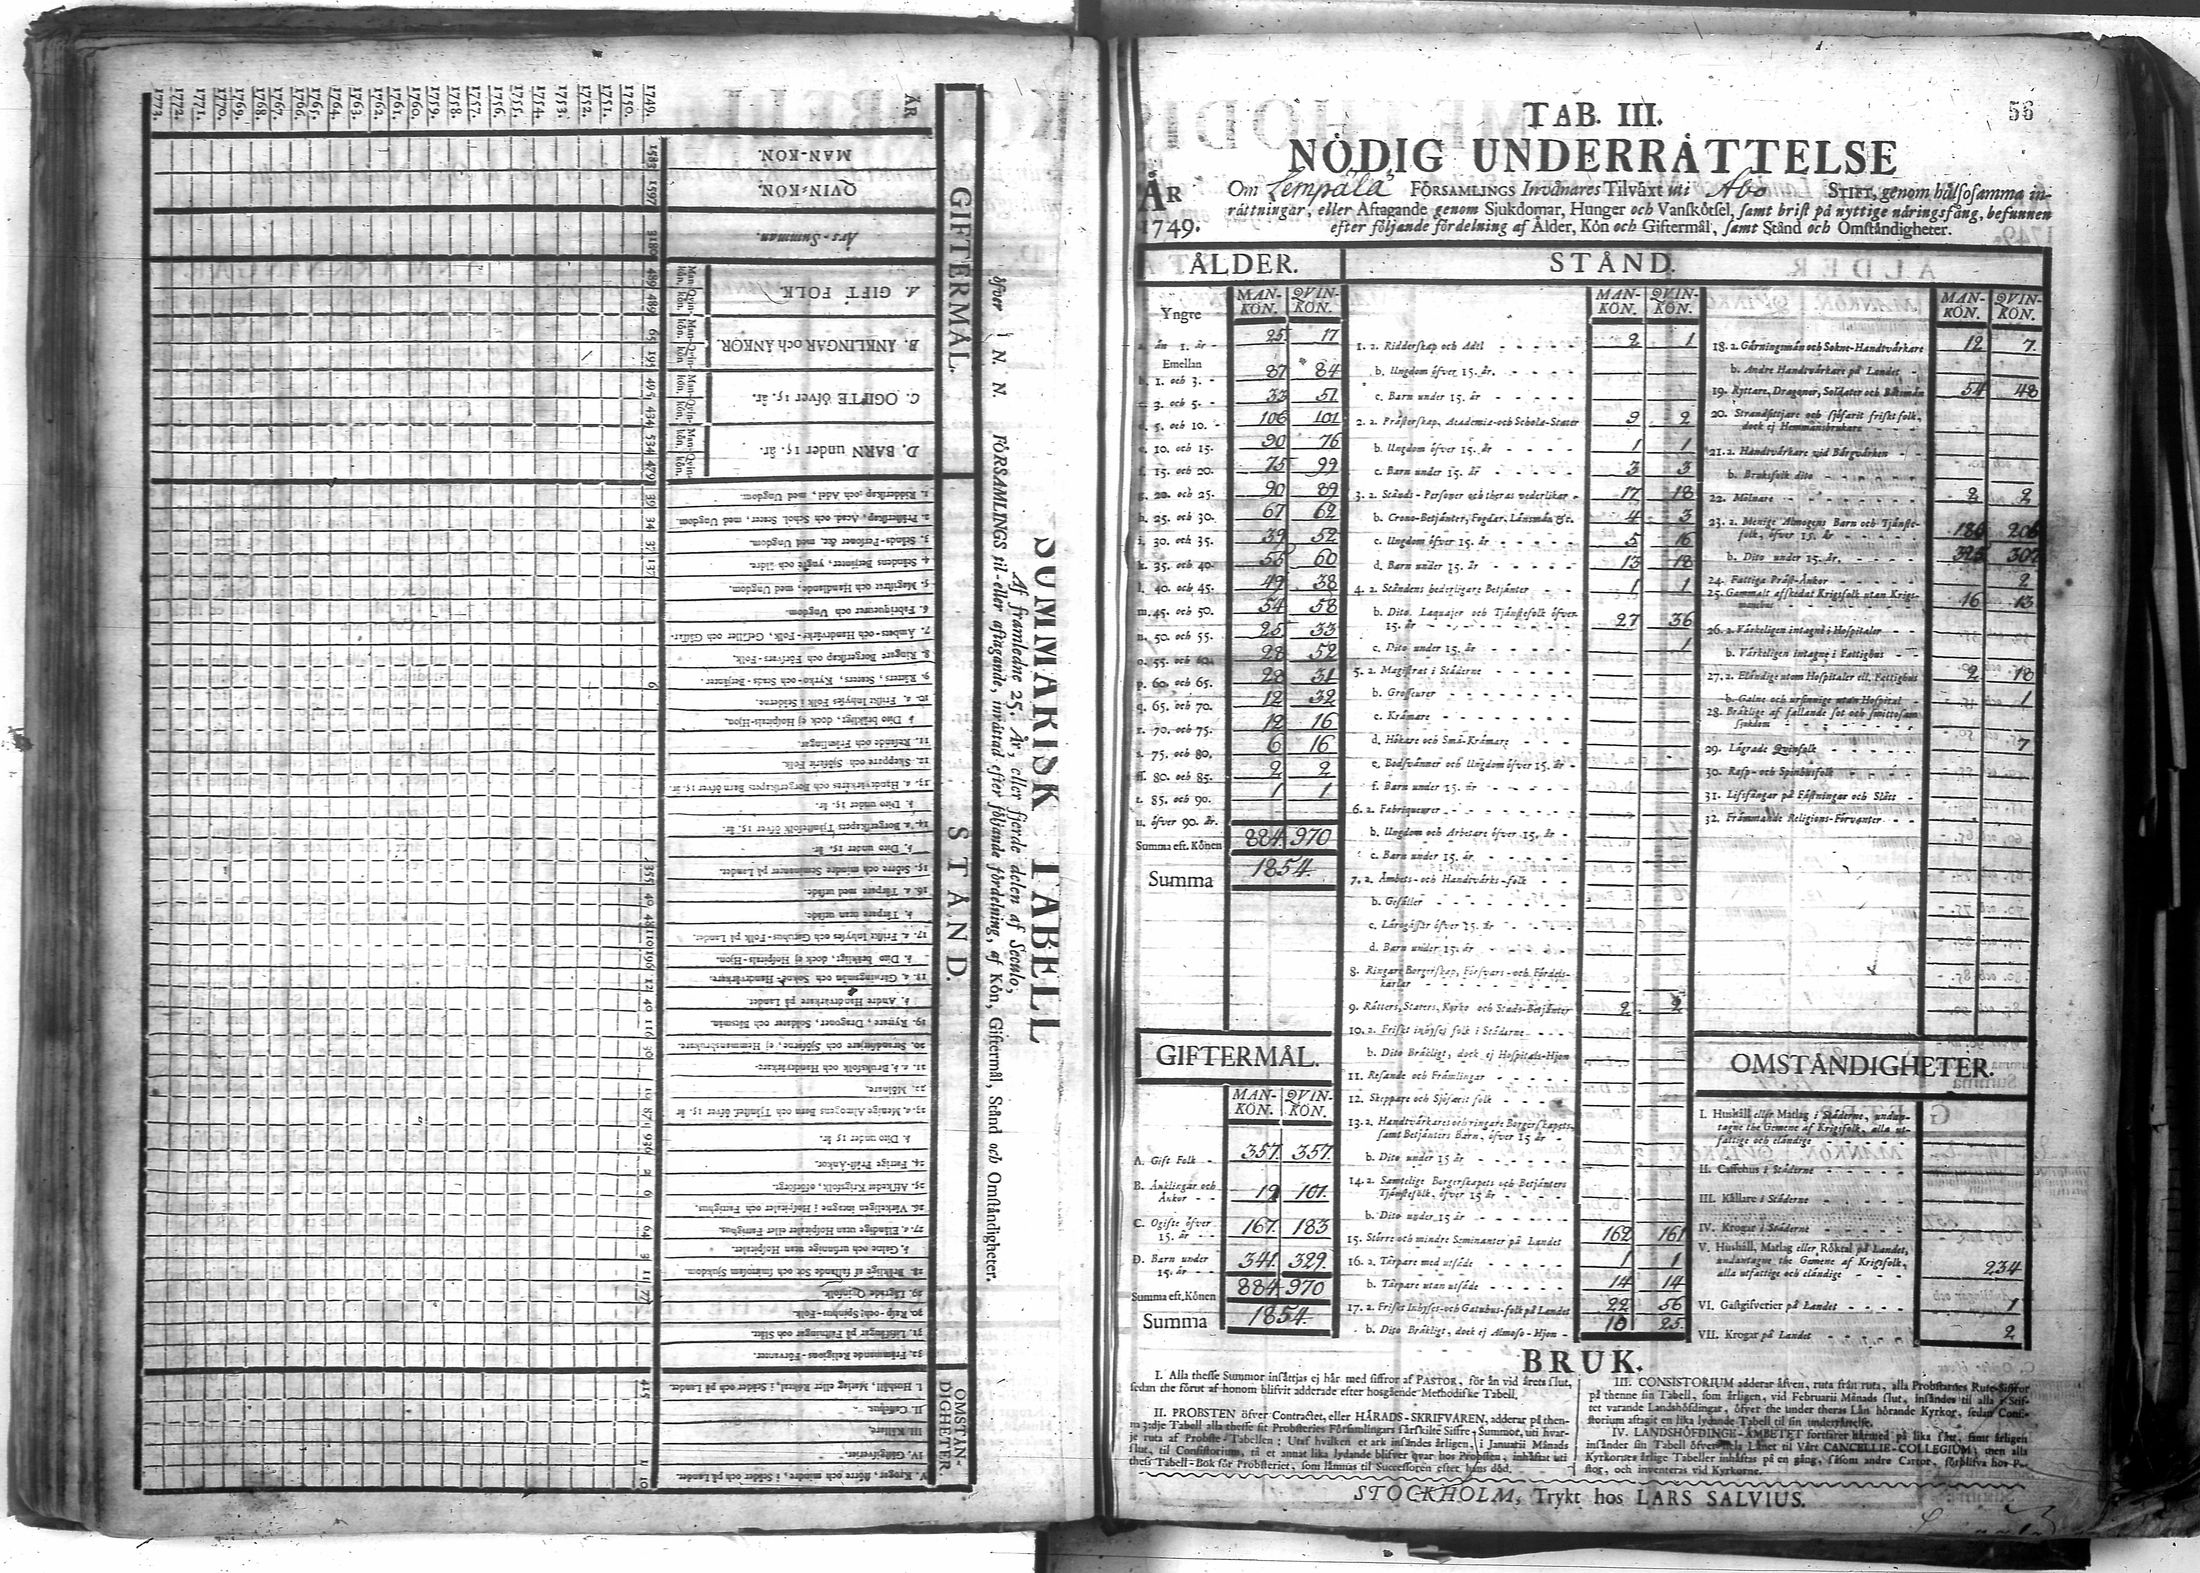 SUMMARISK TABELL
Af framledne 25. År eller fjerde delen af Seculo,
öfver i N. N. FÖRSAMLINGS til- eller aftagande, inrättad efter följande fördelning, af Kön, Giftermål, Stånd och Omständigheter.
GIFTERMÅL.
STÅND.
OMSTÄNDIGHETER.
ÅR
1749.
1750.
1751.
1752.
1753.
1754.
1755.
1756.
1757.
1758.
1759.
1760.
1761.
1762.
1763.
1764.
1765.
1766.
1767.
1768.
1769.
1770.
1771.
1772.
1773.
MAN-KÖN. 1583
QVIN-KÖN. 1597
Års-Summan. 3180
A. GIFT FOLK Man-kön. 489 Qvin-kön. 489
B. ÄNKLINGAR och ÄNKOR. Man-kön. 65 Qvin-kön. 195
C. OGIFTE öfver 15. år. Man-kön. 495 Qvin-kön. 434
D. BARN under 15. år. Man-kön. 534 Qvin-kön. 479
1. Ridderskap och Adel, med Ungdom. 39
2. Prästerskap, Acad. och Schol. Stater, med Ungdom. 34
3. Stånds-Personer &c. med Ungdom. 37
4. Ståndens Betjänter, yngre och äldre. 137
5. Magistrat och Handlande, med Ungdom.
6. Fabriqueurer och Ungdom.
7. Ämbets- och Handtvärks-Folk, Gesäller och Gåssar.
8. Ringare Borgerskap och Försvars-Folk.
9. Rätters, Staters, Kyrko- och Stads-Betjänter. 6
10. a. Friskt Inhyses Folk i Städerne.
b. Dito bräkligt, dock ej Hospitals-Hjon.
11. Resande och Främlingar.
12. Skeppare och Sjöfarit Folk.
13. a. Handtvärkares och Borgerskapets Barn öfver 15. år.
b. Dito under 15. år.
14. a. Borgerskapets Tjänstefolk öfver 15. år.
b. Dito under 15. år.
15. Större och mindre Seminanter på Landet. 355
16. a. Tårpare med utsäde.
b. Tårpare utan utsäde.
17. a. Friskt Inhyses och Gatuhus-Folk på Landet.
b. Dito bräkligt, dock ej Hospitals-Hjon.
18. a. Gärningsmän och Sokne-Handtvärkare.
b. Andre Handtvärkare på Landet.
19. Ryttare, Dragoner, Soldater och Båtsmän.
20. Strandsittjare och Sjöfarne, ej Hemmansbrukare.
21. a. b. Bruksfolk och Handtvärkare.
22. Mölnare.
23. a. Menige Almogens Barn och Tjänstef. öfver 15. år
b. Dito under 15. år.
24. Fattige Präst-Änkor.
25. Afskedat Krigsfolk, oförsörgt.
26. Värkeligen intagne i Hospitaler och Fattighus.
27. a. Eländige utan Hospitaler eller Fattighus.
b. Galne och ursinnige utan Hospitaler.
28. Bräklige af fallande Sot och smittosam Sjukdom.
29. Lägrade Qvinfolk.
30. Rasp- och Spinhus-Folk.
31. Lifsfångar på Fästningar och Slått.
32. Främmande Religions-Förvanter.
I. Hushåll, Matlag eller Röktal, i Städer och på Landet. 415
II. Caffehus.
III. Källare.
IV. Gästgifverier. 1
V. Krogar, större och mindre, i Städer och på Landet. 10
56
TAB. III.
NÖDIG UNDERRÄTTELSE
ÅR 1749.
Om Lempälä FÖRSAMLINGS Invånares Tilväxt uti Åbo STIFT, genom hälsosamma in-
rättningar, eller Aftagande genom Sjukdomar, Hunger och Vanskötsel, samt brist på nyttige näringsfång, befunnen
efter följande fördelning af Ålder, Kön och Giftermål, samt Stånd och Omständigheter.
ÅLDER.
MAN-KÖN. QVIN-KÖN.
Yngre
a. än 1. år - 25 17
Emellan
b. 1. och 3. - 87 84
c. 3. och 5. - 33 51
d. 5. och 10. - 106 101
e. 10. och 15. 90 76
f. 15. och 20. 75 99
g. 20. och 25. 90 89
h. 25. och 30. 67 62
i. 30. och 35. 39 52
k. 35. och 40. 55 60
l. 40. och 45. 49 38
m. 45. och 50. 54 58
n. 50. och 55. 25 33
o. 55. och 60. 28 52
p. 60. och 65. 28 31
q. 65. och 70. 12 32
r. 70. och 75. 12 16
s. 75. och 80. 6 16
ss. 80. och 85. 2 2
t. 85. och 90. 1 1
u. öfver 90. år.
Summa eft. Könen 884. 970
Summa 1854.
GIFTERMÅL.
MAN-KÖN. QVIN-KÖN.
A. Gift Folk - 357. 357.
B. Änklingar och Änkor - - 19 101.
C. Ogifte öfver 15. år - - 167. 183
D. Barn under 15. år - - 341. 329.
Summa eft. Könen 884. 970
Summa 1854.
STÅND.
MAN-KÖN. QVIN-KÖN.
1. a. Ridderskap och Adel - - - - - 2 1
b. Ungdom öfver 15. år. - - - -
c. Barn under 15. år - - - -
2. a. Prästerskap, Academiæ- och Scholæ-Stater 9 2
b. Ungdom öfver 15. år - - - - 1 1
c. Barn under 15. år - - - - 3 3
3. a. Stånds-Personer och theras vederlikar - 17 18
b. Crono-Betjänter, Fogdar, Länsmän &c. 4 3
c. Ungdom öfver 15. år - - - - 5 16
d. Barn under 15. år - - - - 13 18
4. a. Ståndens hederligare Betjänter - - 1 1
b. Dito, Laquajer och Tjänstefolk öfver
15. år - - - - - - - 27 36
c. Dito under 15. år - - - - 1
5. a. Magistrat i Städerne - - - -
b. Grosseurer - - - - - -
c. Krämare - - - - - - -
d. Hökare och Små-Krämare - - - -
e. Bodsvänner och Ungdom öfver 15. år -
f. Barn under 15. år - - - -
6. a. Fabriqueurer - - - - - -
b. Ungdom och Arbetare öfver 15. år -
c. Barn under 15. år - - - -
7. a. Ämbets- och Handtvärks-folk - -
b. Gesäller - - - - - - -
c. Lärogåssar öfver 15. år - - - -
d. Barn under 15. år - - - -
8. Ringare Borgerskap, Försvars- och Fördels-
karlar - - - - - - -
9. Rätters, Staters, Kyrko och Stads-Betjänter 2 2
10. a. Friskt inhyses folk i Städerne - - -
b. Dito Bräkligt, dock ej Hospitals-Hjon
11. Resande och Främlingar - - - -
12. Skeppare och Sjöfarit folk - - - -
13. a. Handtvärkares och ringare Borgerskapets-
samt Betjänters Barn, öfver 15 år -
b. Dito under 15 år - - - -
14. a. Samtelige Borgerskapets och Betjänters
Tjänstefolk, öfver 15 år - - -
b. Dito under 15 år - - - -
15. Större och mindre Seminanter på Landet 162 161
16. a. Tårpare med utsäde - - - - 1 1
b. Tårpare utan utsäde - - - - 14 14
17. a. Friskt Inhyses- och Gatuhus-folk på Landet 22 56
b. Dito Bräkligt, dock ej Almoso-Hjon - 18 25.
MAN-KÖN. QVIN-KÖN.
18. a. Gärningsmän och Sokne-Handtvärkare 12 7.
b. Andre Handtvärkare på Landet -
19. Ryttare, Dragoner, Soldater och Båtsmän 54 48
20. Strandsittjare och sjöfarit friskt folk,
dock ej Hemmansbrukare - - -
21. a. Handtvärkare vid Bärgvärken - -
b. Bruksfolk dito - - - -
22. Mölnare - - - - - - 2 2
23. a. Menige Almogens Barn och Tjänste-
folk, öfver 15. år - - - - 186 206
b. Dito under 15. år. - - - 325 307
24. Fattiga Präst-Änkor - - - - 2
25. Gammalt afskedat Krigsfolk utan Krigs-
manshus - - - - - - 16 13
26. a. Värkeligen intagne i Hospitaler - -
b. Värkeligen intagne i Fattighus - -
27. a. Eländige utom Hospitaler ell. Fattighus 2 18
b. Galne och ursinnige utan Hospital - 1
28. Bräklige af fallande sot och smittosam
sjukdom - - - - - -
29. Lägrade Qvinfolk - - - - - 7
30. Rasp- och Spinhusfolk - - - -
31. Lifsfångar på Fästningar och Slått -
32. Främmande Religions-Förvanter - -
OMSTÄNDIGHETER.
I. Hushåll eller Matlag i Städerne, undan-
tagne the Gemene af Krigsfolk, alla ut-
fattige och eländige - - - - -
II. Caffehus i Städerne - - - -
III. Källare i Städerne - - - -
IV. Krogar i Städerne - - - -
V. Hushåll, Matlag eller Röktal på Landet,
undantagne the Gemene af Krigsfolk,
alla utfattige och eländige - - - 234
VI. Gästgifverier på Landet - - - - 1
VII. Krogar på Landet - - - - 2
BRUK.
I. Alla thesse Summor insättjas ej här med siffror af PASTOR, för än vid årets slut,
sedan the förut af honom blifvit adderade efter hosgående Methodiske Tabell.
II. PROBSTEN öfver Contractet, eller HÄRADS-SKRIFVAREN, adderar på then-
na 3:dje Tabell alla thesse sit Probsteries Församlingars särskilte Siffre-Summor, uti hvar-
je ruta af Probste-Tabellen: Utaf hvilken et ark insändes årligen, i Januarii Månads
slut, til Consistorium, tå et annat lika lydande blifver qvar hos Probsten, inhäftat uti
thess Tabell-Bok för Probsteriet, som lämnas til Successoren efter hans död.
III. CONSISTORIUM adderar äfven, ruta från ruta, alla Probstarnes Rute-Siffror
på thenne sin Tabell, som årligen, vid Februarii Månads slut, insändes til alla i Stif-
tet varande Landshöfdingar, öfver the under theras Län hörande Kyrkor, sedan Consi-
storium aftagit en lika lydande Tabell til sin underrättelse.
IV. LANDSHÖFDINGE-ÄMBETET fortfarer härmed på lika sätt, samt årligen
insänder sin Tabell öfver hela Länet til Vårt CANCELLIE-COLLEGIUM; men alla
Kyrkornes årlige Tabeller inhäftas på en gång, såsom andre Cartor, förblifva hos Pa-
stor, och inventeras vid Kyrkorne.
STOCKHOLM, Trykt hos LARS SALVIUS.